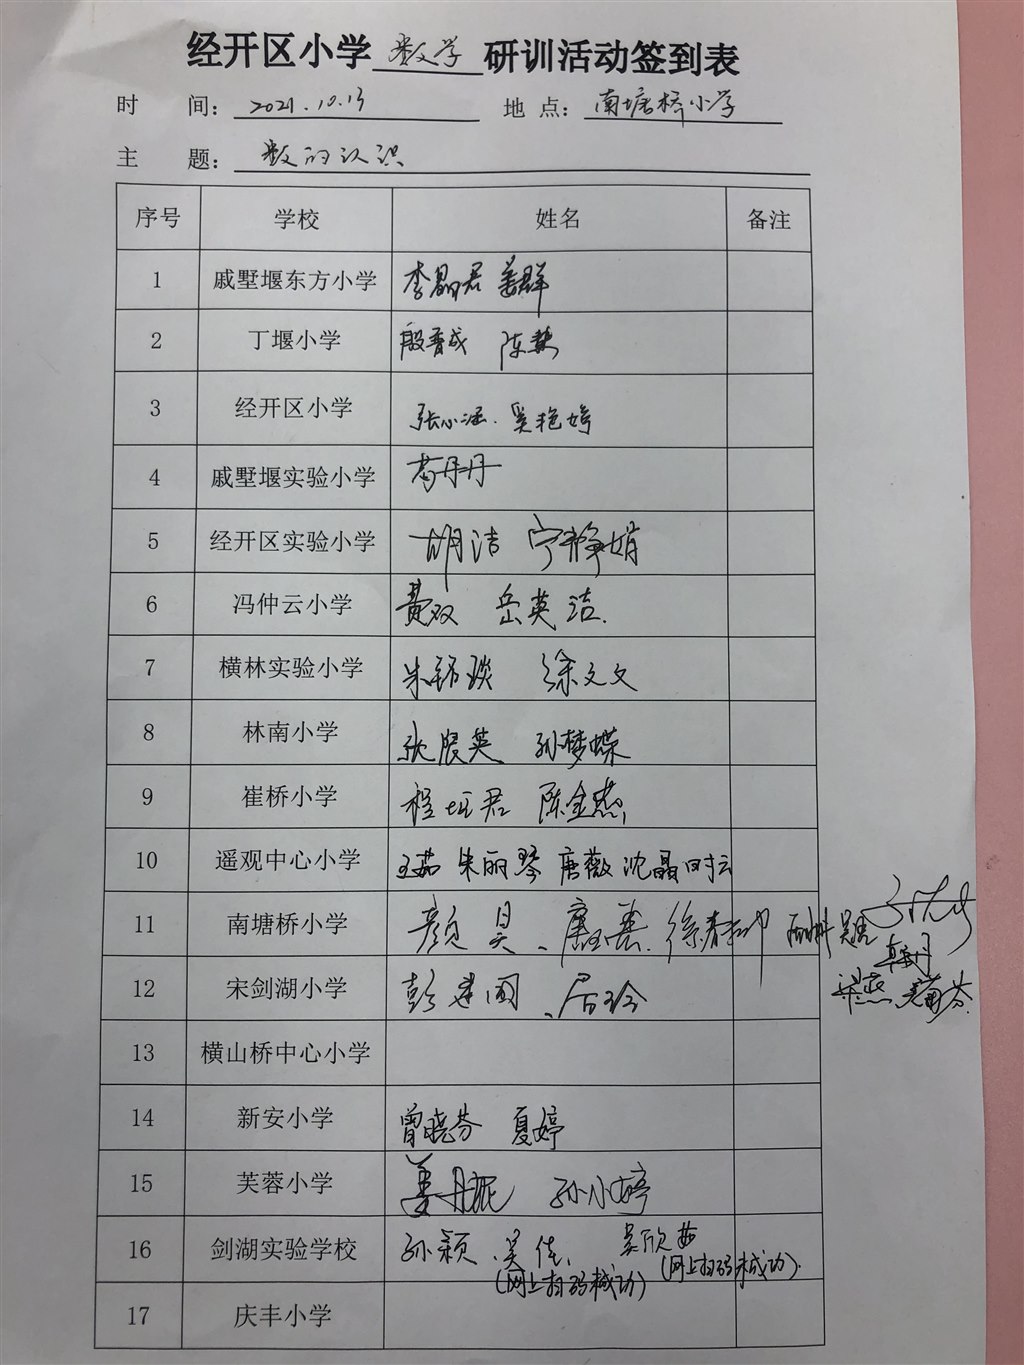 经开区小学 数学 研训活动签到表
时 间： 2021.10.13 地 点： 南塘桥小学
主 题： 数的认识
序号 学校 姓名 备注
1 戚墅堰东方小学 李晶君 姜群
2 丁堰小学 殷育成 陈慧
3 经开区小学 张小涵. 吴艳婷
4 戚墅堰实验小学 丹丹
5 经开区实验小学 胡洁 宁静娟
6 冯仲云小学 黄双 岳英洁.
7 横林实验小学 朱铭琰 徐文文
8 林南小学 孙梦蝶
9 崔桥小学 程 君 陈金杰
10 遥观中心小学 王茹 朱丽琴 唐薇 沈晶 时云
11 南塘桥小学 颜昊、
12 宋剑湖小学 彭建国、居玲
13 横山桥中心小学
14 新安小学 曾晓芬 夏婷
15 芙蓉小学 姜丹妮 孙小婷
16 剑湖实验学校 孙颖、吴佳、 吴欣茹
(网上扫码成功) (网上扫码成功).
17 庆丰小学